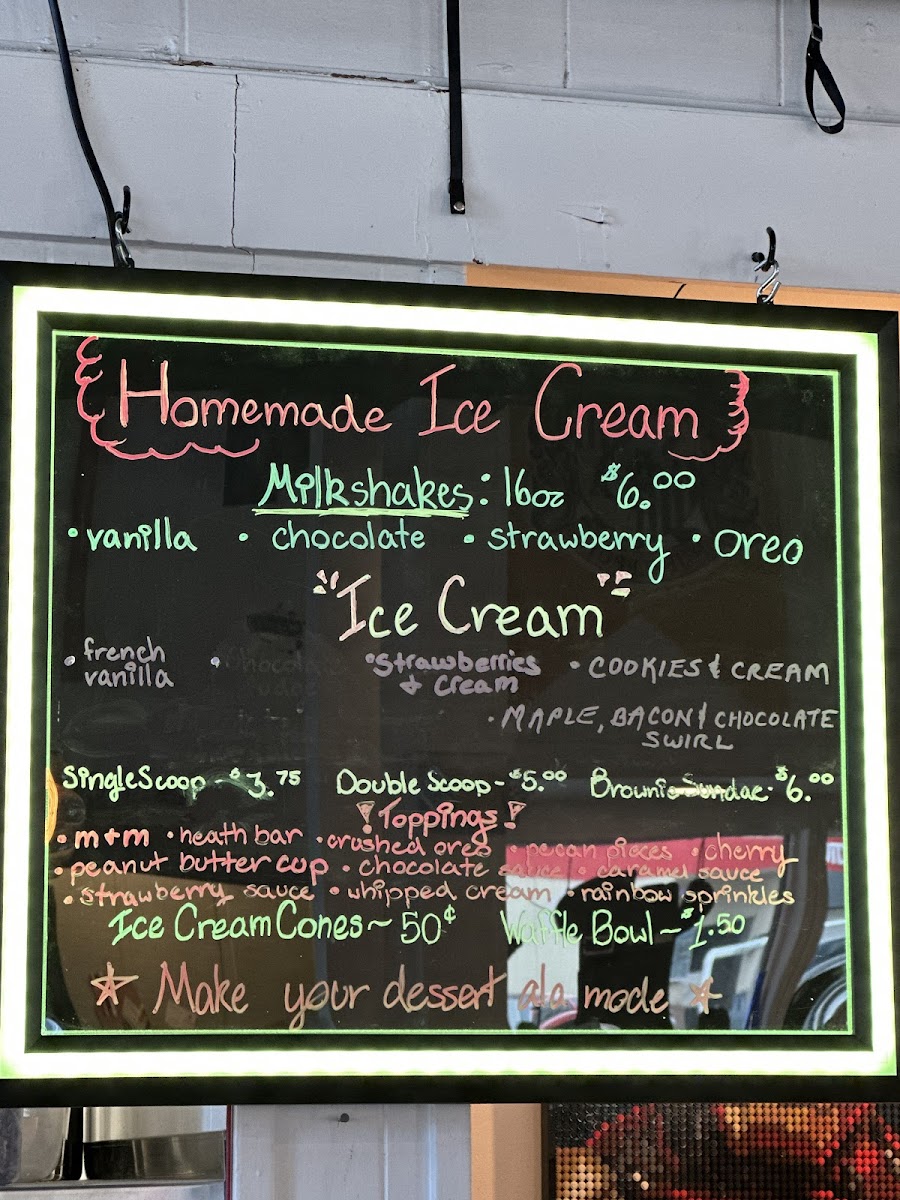 Homemade Ice Cream
Milkshakes: 16oz $6.00
• vanilla • chocolate • strawberry • oreo
"Ice Cream"
• french vanilla • Chocolate • Strawberries + Cream • COOKIES & CREAM
• MAPLE, BACON & CHOCOLATE SWIRL
Single Scoop - $3.75 Double Scoop - $5.00 Brownie Sundae - $6.00
! Toppings !
• m+m • heath bar • crushed oreo • pecan pieces • cherry
• peanut butter cup • chocolate sauce • caramel sauce
• strawberry sauce • whipped cream • rainbow sprinkles
Ice Cream Cones ~ 50¢ Waffle Bowl ~ $1.50
☆ Make your dessert ala mode ☆